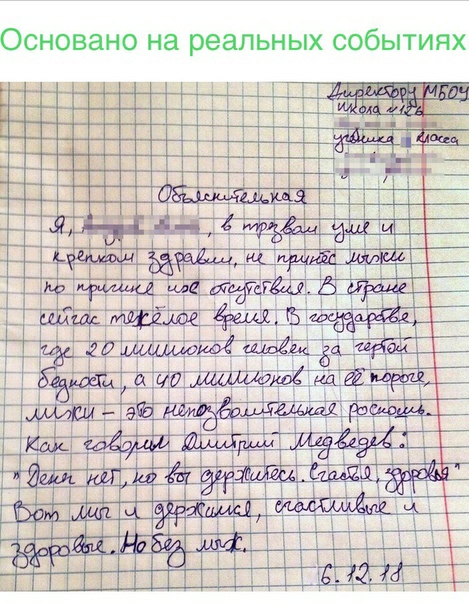 Основано на реальных событиях
Директору МБОУ
школа №126
ученика класса
Объяснительная
Я, , в трезвом уме и
крепком здравии, не принёс лыжи
по причине их отсутствия. В стране
сейчас тяжёлое время. В государстве,
где 20 миллионов человек за чертой
бедности, а 40 миллионов на её пороге,
лыжи – это непозволительная роскошь.
Как говорил Дмитрий Медведев:
"Денег нет, но вы держитесь. Счастья, здоровья"
Вот мы и держимся, счастливые и
здоровые. Но без лыж.
6.12.18